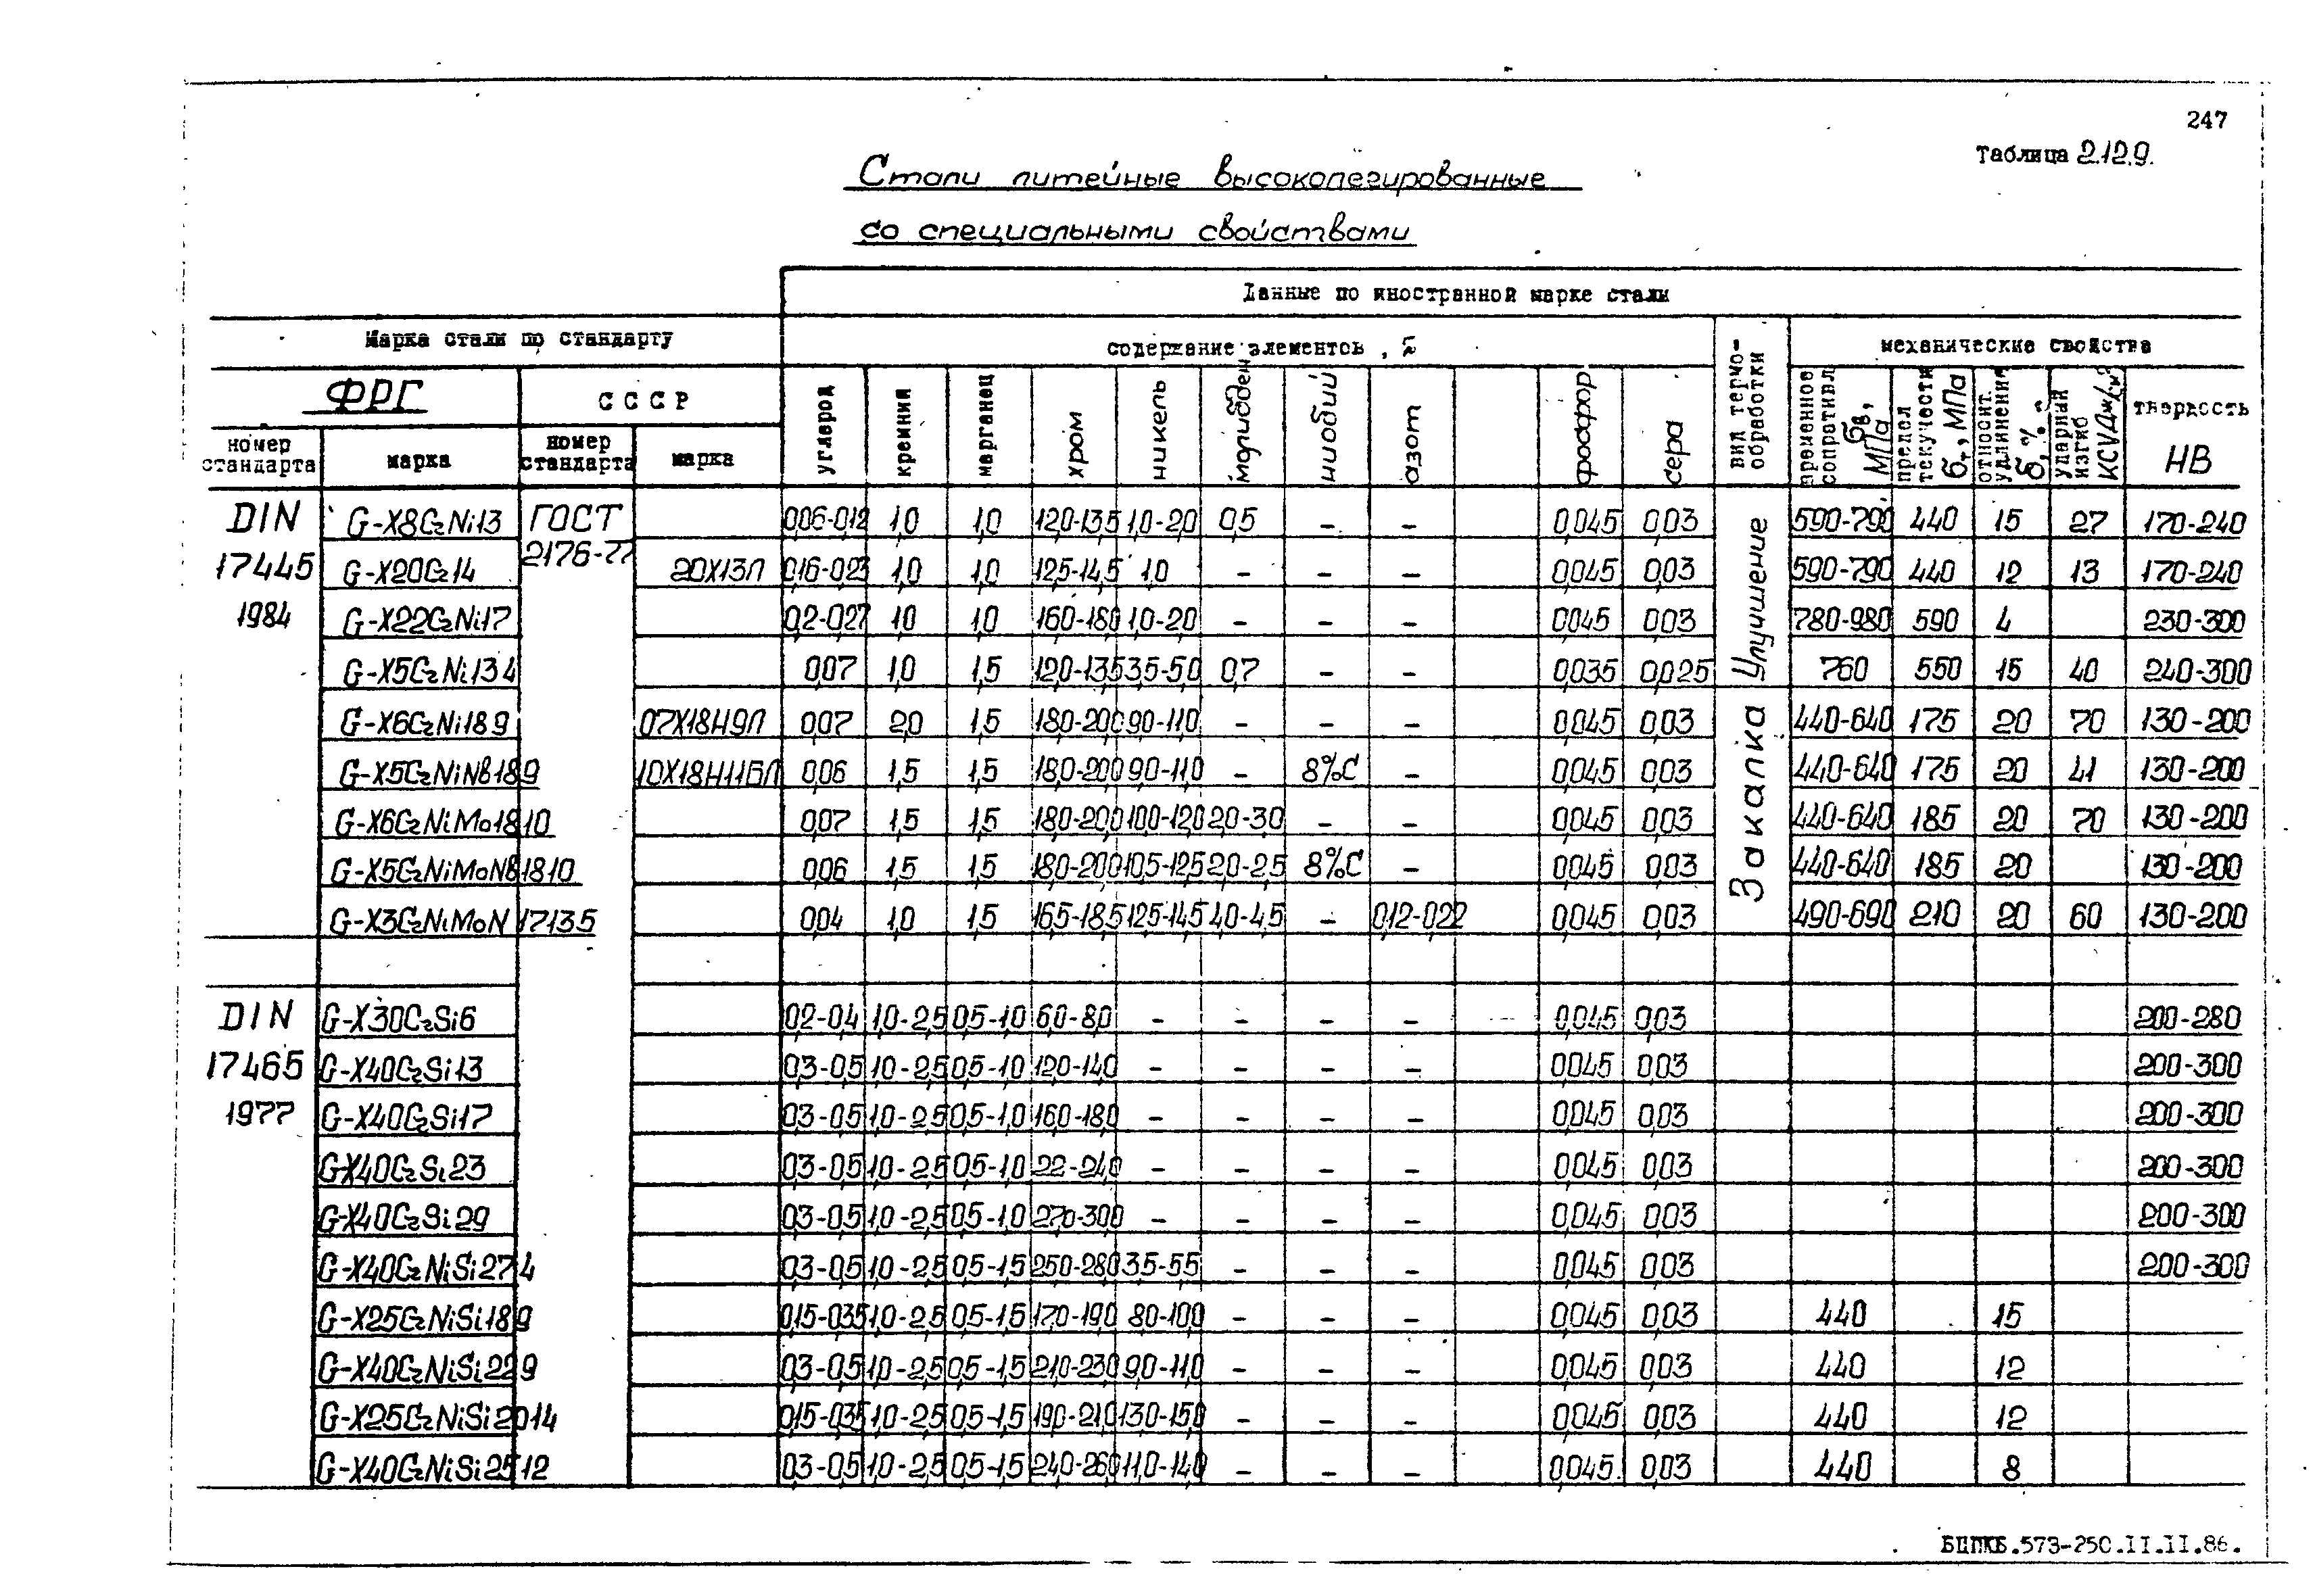 247
Таблица 2.12.9.
Стали литейные высоколегированные
со специальными свойствами
Данные по иностранной марке стали
Марка стали по стандарту
содержание элементов, %
механические свойства
ФРГ
СССР
номер стандарта
марка
номер стандарта
марка
углерод
кремний
марганец
хром
никель
молибден
ниобий
азот
фосфор
сера
вид термо-обработки
временное сопротивл. бв, МПа
предел текучести бт, МПа
относит. удлинение б, %
ударный изгиб KCV Дж/м²
твердость
НВ
DIN 17445 1984
ГОСТ 2176-77
Улучшение
Закалка
G-X8CrNi13 0,06-0,12 1,0 1,0 12,0-13,5 1,0-2,0 0,5 – – 0,045 0,03 590-790 440 15 27 170-240
G-X20Cr14 20Х13Л 0,16-0,23 1,0 1,0 12,5-14,5 1,0 – – – 0,045 0,03 590-790 440 12 13 170-240
G-X22CrNi17 0,2-0,27 1,0 1,0 16,0-18,0 1,0-2,0 – – – 0,045 0,03 780-980 590 4 230-300
G-X5CrNi13 4 0,07 1,0 1,5 12,0-13,5 3,5-5,0 0,7 – – 0,035 0,025 760 550 15 40 240-300
G-X6CrNi18 9 07Х18Н9Л 0,07 2,0 1,5 18,0-20,0 9,0-11,0 – – – 0,045 0,03 440-640 175 20 70 130-200
G-X5CrNiNb18 9 10Х18Н11БЛ 0,06 1,5 1,5 18,0-20,0 9,0-11,0 – 8%C – 0,045 0,03 440-640 175 20 41 130-200
G-X6CrNiMo18 10 0,07 1,5 1,5 18,0-20,0 10,0-12,0 2,0-3,0 – – 0,045 0,03 440-640 185 20 70 130-200
G-X5CrNiMoNb18 10 0,06 1,5 1,5 18,0-20,0 10,5-12,5 2,0-2,5 8%C – 0,045 0,03 440-640 185 20 130-200
G-X3CrNiMoN 17 13 5 0,04 1,0 1,5 16,5-18,5 12,5-14,5 4,0-4,5 – 0,12-0,22 0,045 0,03 490-690 210 20 60 130-200
DIN 17465 1977
G-X30CrSi6 0,2-0,4 1,0-2,5 0,5-1,0 6,0-8,0 – – – – 0,045 0,03 200-280
G-X40CrSi13 0,3-0,5 1,0-2,5 0,5-1,0 12,0-14,0 – – – – 0,045 0,03 200-300
G-X40CrSi17 0,3-0,5 1,0-2,5 0,5-1,0 16,0-18,0 – – – – 0,045 0,03 200-300
G-X40CrSi23 0,3-0,5 1,0-2,5 0,5-1,0 22-24,0 – – – – 0,045 0,03 200-300
G-X40CrSi29 0,3-0,5 1,0-2,5 0,5-1,0 27,0-30,0 – – – – 0,045 0,03 200-300
G-X40CrNiSi27 4 0,3-0,5 1,0-2,5 0,5-1,5 25,0-28,0 3,5-5,5 – – – 0,045 0,03 200-300
G-X25CrNiSi18 9 0,15-0,35 1,0-2,5 0,5-1,5 17,0-19,0 8,0-10,0 – – – 0,045 0,03 440 15
G-X40CrNiSi22 9 0,3-0,5 1,0-2,5 0,5-1,5 21,0-23,0 9,0-11,0 – – – 0,045 0,03 440 12
G-X25CrNiSi20 14 0,15-0,35 1,0-2,5 0,5-1,5 19,0-21,0 13,0-15,0 – – – 0,045 0,03 440 12
G-X40CrNiSi25 12 0,3-0,5 1,0-2,5 0,5-1,5 24,0-26,0 11,0-14,0 – – – 0,045 0,03 440 8
БЦПКБ.573-250.II.II.86.